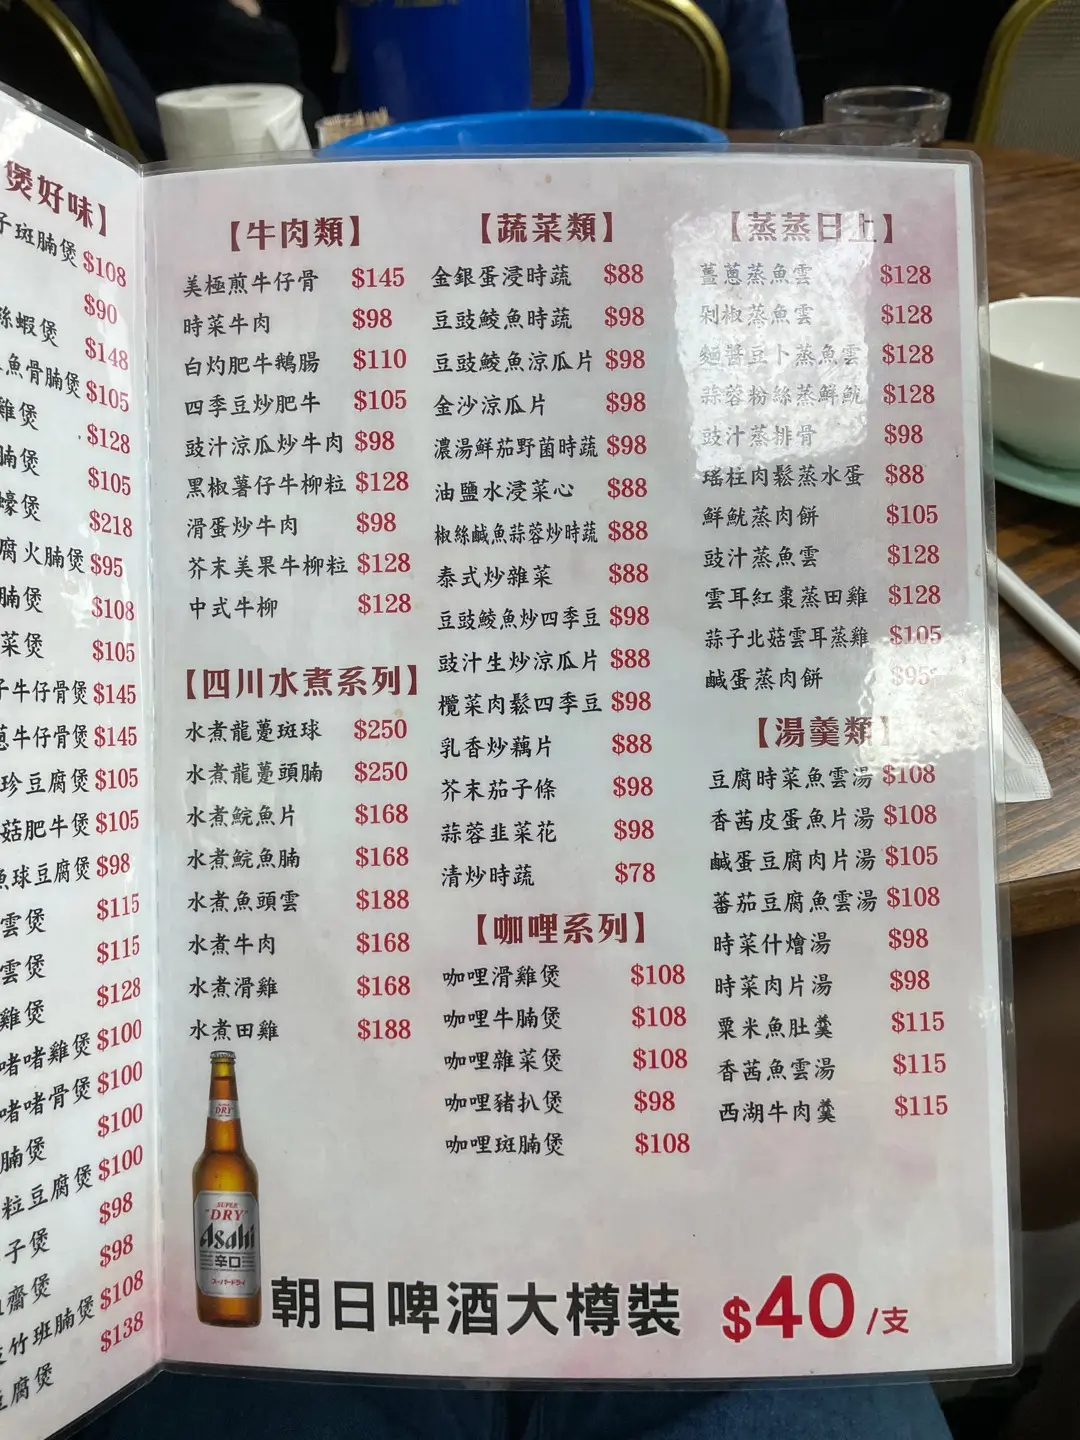 煲好味】
子斑腩煲 $108
$90
絲蝦煲 $148
魚骨腩煲 $105
雞煲 $128
腩煲 $105
蠔煲 $218
腐火腩煲 $95
腩煲 $108
菜煲 $105
子牛仔骨煲 $145
蔥牛仔骨煲 $145
珍豆腐煲 $105
菇肥牛煲 $105
魚球豆腐煲 $98
雲煲 $115
雲煲 $115
雞煲 $128
啫啫雞煲 $100
啫啫骨煲 $100
腩煲 $100
粒豆腐煲 $100
子煲 $98
齋煲 $98
竹班腩煲 $108
豆腐煲 $138
【牛肉類】
美極煎牛仔骨 $145
時菜牛肉 $98
白灼肥牛鵝腸 $110
四季豆炒肥牛 $105
豉汁涼瓜炒牛肉 $98
黑椒薯仔牛柳粒 $128
滑蛋炒牛肉 $98
芥末美果牛柳粒 $128
中式牛柳 $128
【四川水煮系列】
水煮龍躉斑球 $250
水煮龍躉頭腩 $250
水煮鯇魚片 $168
水煮鯇魚腩 $168
水煮魚頭雲 $188
水煮牛肉 $168
水煮滑雞 $168
水煮田雞 $188
【蔬菜類】
金銀蛋浸時蔬 $88
豆豉鯪魚時蔬 $98
豆豉鯪魚涼瓜片 $98
金沙涼瓜片 $98
濃湯鮮茄野菌時蔬 $98
油鹽水浸菜心 $88
椒絲鹹魚蒜蓉炒時蔬 $88
泰式炒雜菜 $88
豆豉鯪魚炒四季豆 $98
豉汁生炒涼瓜片 $88
欖菜肉鬆四季豆 $98
乳香炒藕片 $88
芥末茄子條 $98
蒜蓉韭菜花 $98
清炒時蔬 $78
【咖哩系列】
咖哩滑雞煲 $108
咖哩牛腩煲 $108
咖哩雜菜煲 $108
咖哩豬扒煲 $98
咖哩斑腩煲 $108
【蒸蒸日上】
薑蔥蒸魚雲 $128
剁椒蒸魚雲 $128
麵醬豆卜蒸魚雲 $128
蒜蓉粉絲蒸鮮魷 $128
豉汁蒸排骨 $98
瑤柱肉鬆蒸水蛋 $88
鮮魷蒸肉餅 $105
豉汁蒸魚雲 $128
雲耳紅棗蒸田雞 $128
蒜子北菇雲耳蒸雞 $105
鹹蛋蒸肉餅 $95
【湯羹類】
豆腐時菜魚雲湯 $108
香茜皮蛋魚片湯 $108
鹹蛋豆腐肉片湯 $105
蕃茄豆腐魚雲湯 $108
時菜什燴湯 $98
時菜肉片湯 $98
粟米魚肚羹 $115
香茜魚雲湯 $115
西湖牛肉羹 $115
SUPER
"DRY"
Asahi
辛口
スーパードライ
朝日啤酒大樽裝 $40/支